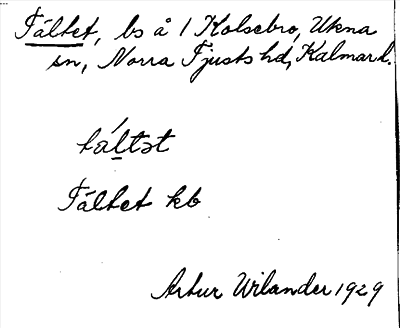 Tältet, bs å 1 Kolsebro, Ukna
sn, Norra Tjusts hd, Kalmar l.
tä́ltət
Tältet kb
Artur Wilander 1929